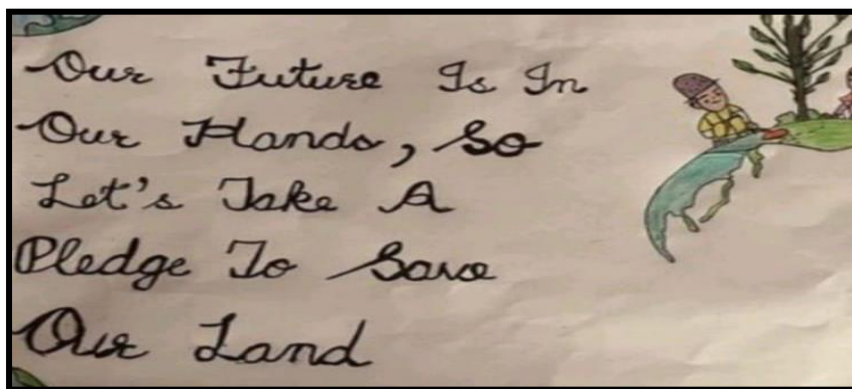 Our Future Is In
Our Hands, So
Let's Take A
Pledge To Save
Our Land